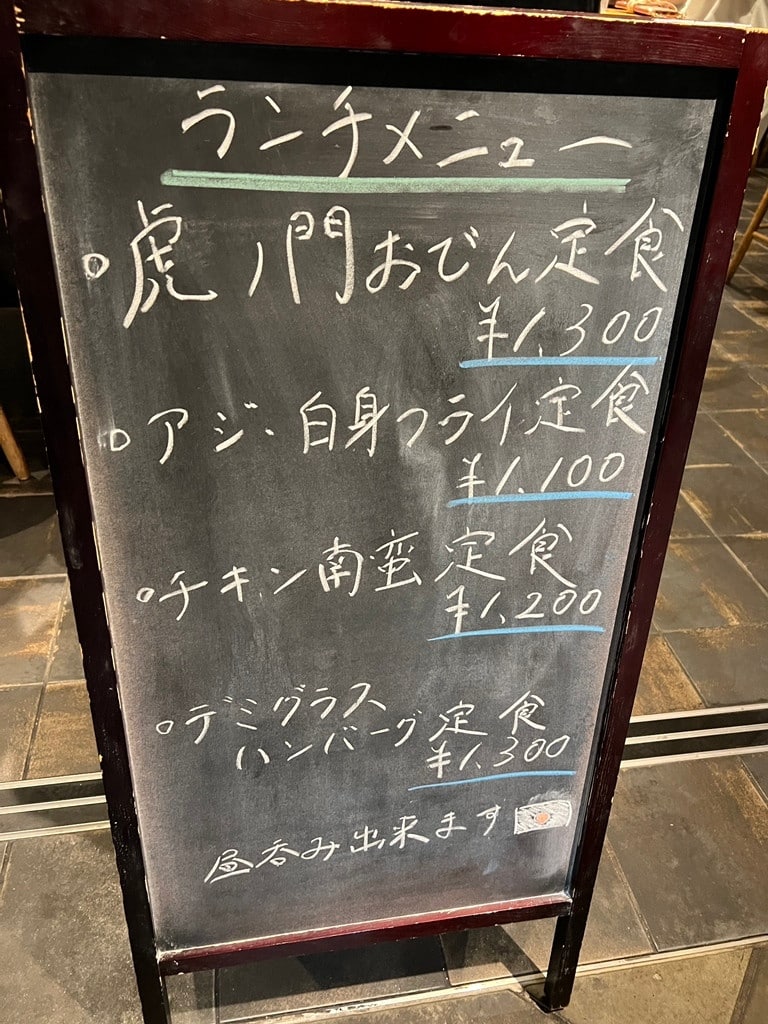 ランチメニュー
○虎ノ門おでん定食
¥1,300
○アジ・白身フライ定食
¥1,100
○チキン南蛮定食
¥1,200
○デミグラス
ハンバーグ定食
¥1,300
昼呑み出来ます